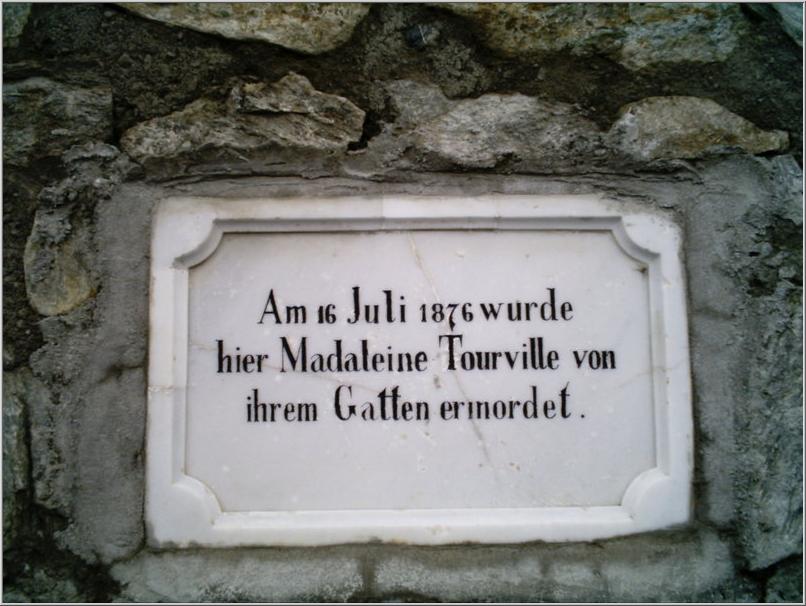 Am 16 Juli 1876 wurde
hier Madaleine Tourville von
ihrem Gatten ermordet.